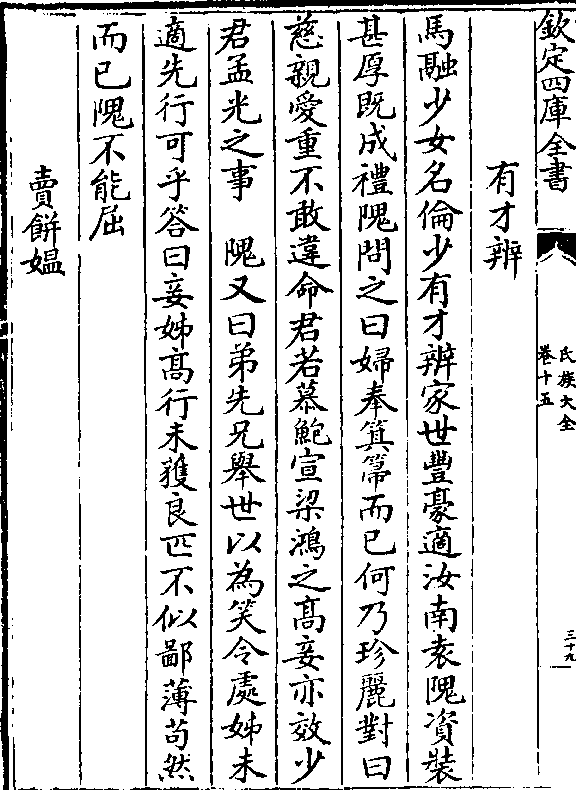 欽定四庫全書
氏族大全
卷十五
三十九
有才辨
馬融少女名倫少有才辨家世豐豪適汝南袁隗資裝
甚厚既成禮隗問之曰婦奉箕箒而已何乃珍麗對曰
慈親愛重不敢違命君若慕鮑宣梁鴻之髙妾亦效少
君孟光之事　隗又曰弟先兄舉世以為笑令處姊未
適先行可乎答曰妾姊髙行未獲良匹不似鄙薄苟然
而已隗不能屈
賣餅媼